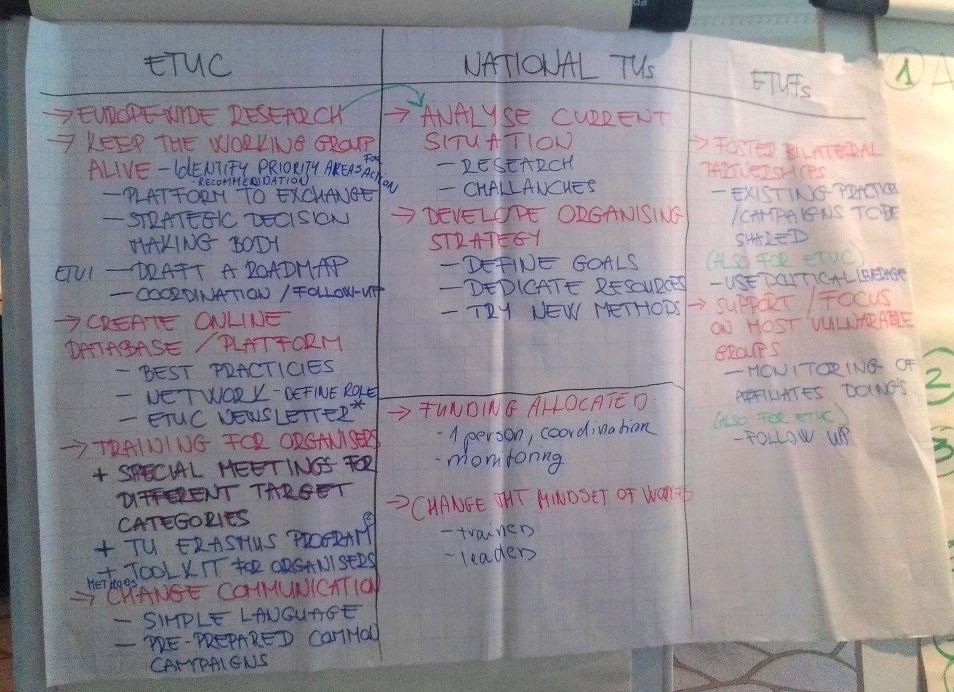 ETUC
→ EUROPE-WIDE RESEARCH
→ KEEP THE WORKING GROUP
ALIVE - IDENTIFY PRIORITY AREAS FOR ACTION
RECOMMENDATION
- PLATFORM TO EXCHANGE
- STRATEGIC DECISION
MAKING BODY
ETUI - DRAFT A ROADMAP
- COORDINATION / FOLLOW-UP
→ CREATE ONLINE
DATABASE / PLATFORM
- BEST PRACTICIES
- NETWORK - DEFINE ROLE
- ETUC NEWSLETTER*
→ TRAINING FOR ORGANISERS
+ SPECIAL MEETINGS FOR
DIFFERENT TARGET
CATEGORIES
+ TU ERASMUS PROGRAM
+ TOOLKIT FOR ORGANISERS
METHODS
→ CHANGE COMMUNICATION
- SIMPLE LANGUAGE
- PRE-PREPARED COMMON
CAMPAIGNS
NATIONAL TUs
→ ANALYSE CURRENT
SITUATION
- RESEARCH
- CHALLANCHES
→ DEVELOPE ORGANISING
STRATEGY
- DEFINE GOALS
- DEDICATE RESOURCES
- TRY NEW METHODS
→ FUNDING ALLOCATED
- 1 person, coordination
- monitoring
→ CHANGE THT MINDSET OF
- trainers
- leaders
ETUFs
→ FOSTER BILATERAL
PARTNERSHIPS
- EXISTING PRACTICES
/CAMPAIGNS TO BE
SHARED
(ALSO FOR ETUC)
- USE POLITICAL
→ SUPPORT / FOCUS
ON MOST VULNARABLE
GROUPS
- MONITORING OF
AFFILIATES DOING'S
(ALSO FOR ETUC)
- FOLLOW UP
1 A
2
3